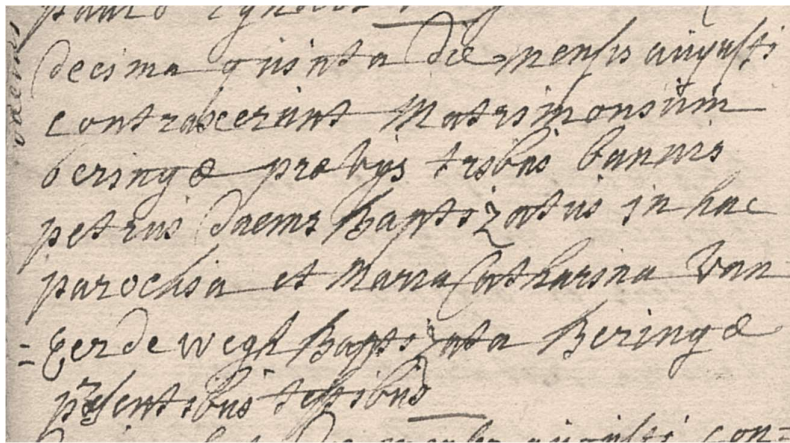 decima quinta die mensis augusti
contraxerunt Matrimonium
beringæ præviis tribus bannis
petrus daems Baptizatus in hac
parochia et Maria Catharina Van
=Eerdewegh Baptizata Beringæ
præsentibus testibus